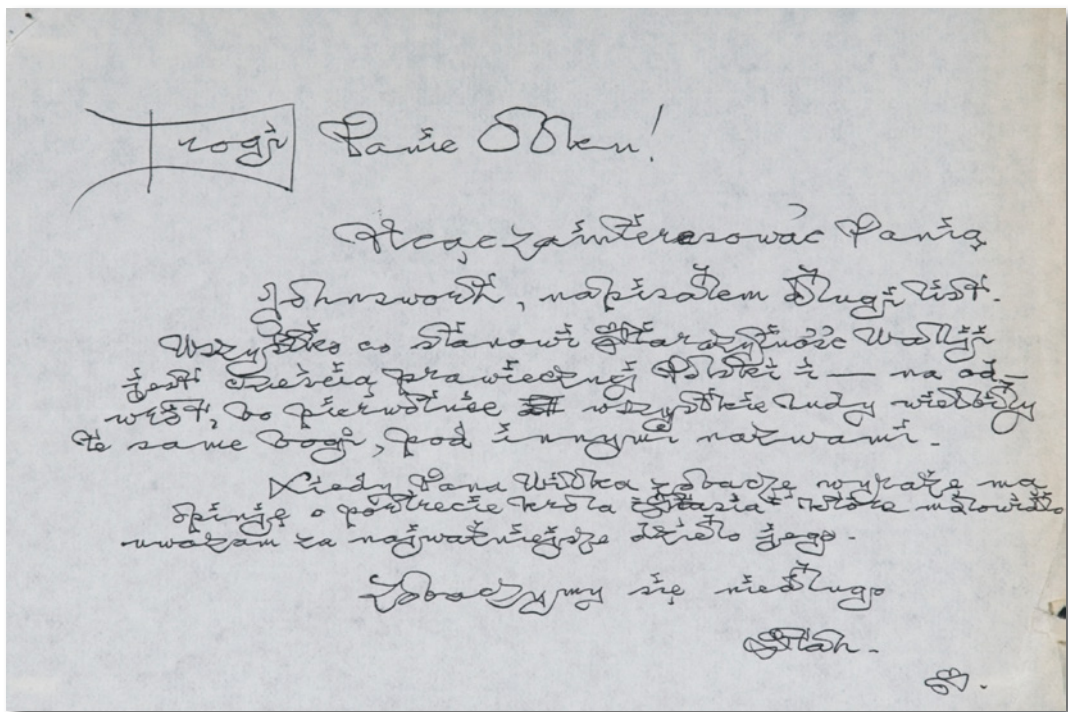 rogi Panie Olken!
Chcąc zainteresować Panią
Johnsworth, napisałem długi list.
Wszystko co stanowi starożytność Wallji
jest cześcią prawiecznej Polski i — na od-
wrót, bo pierwotnie wszystkie ludy wielbiły
te same bogi, pod innymi nazwami.
Kiedy Pana Witka zobaczę wyrażę mą
opinję o portrecie króla "Stasia" które malowidło
uważam za najważniejsze dzieło jego.
Zobaczymy się niedługo
Stah.